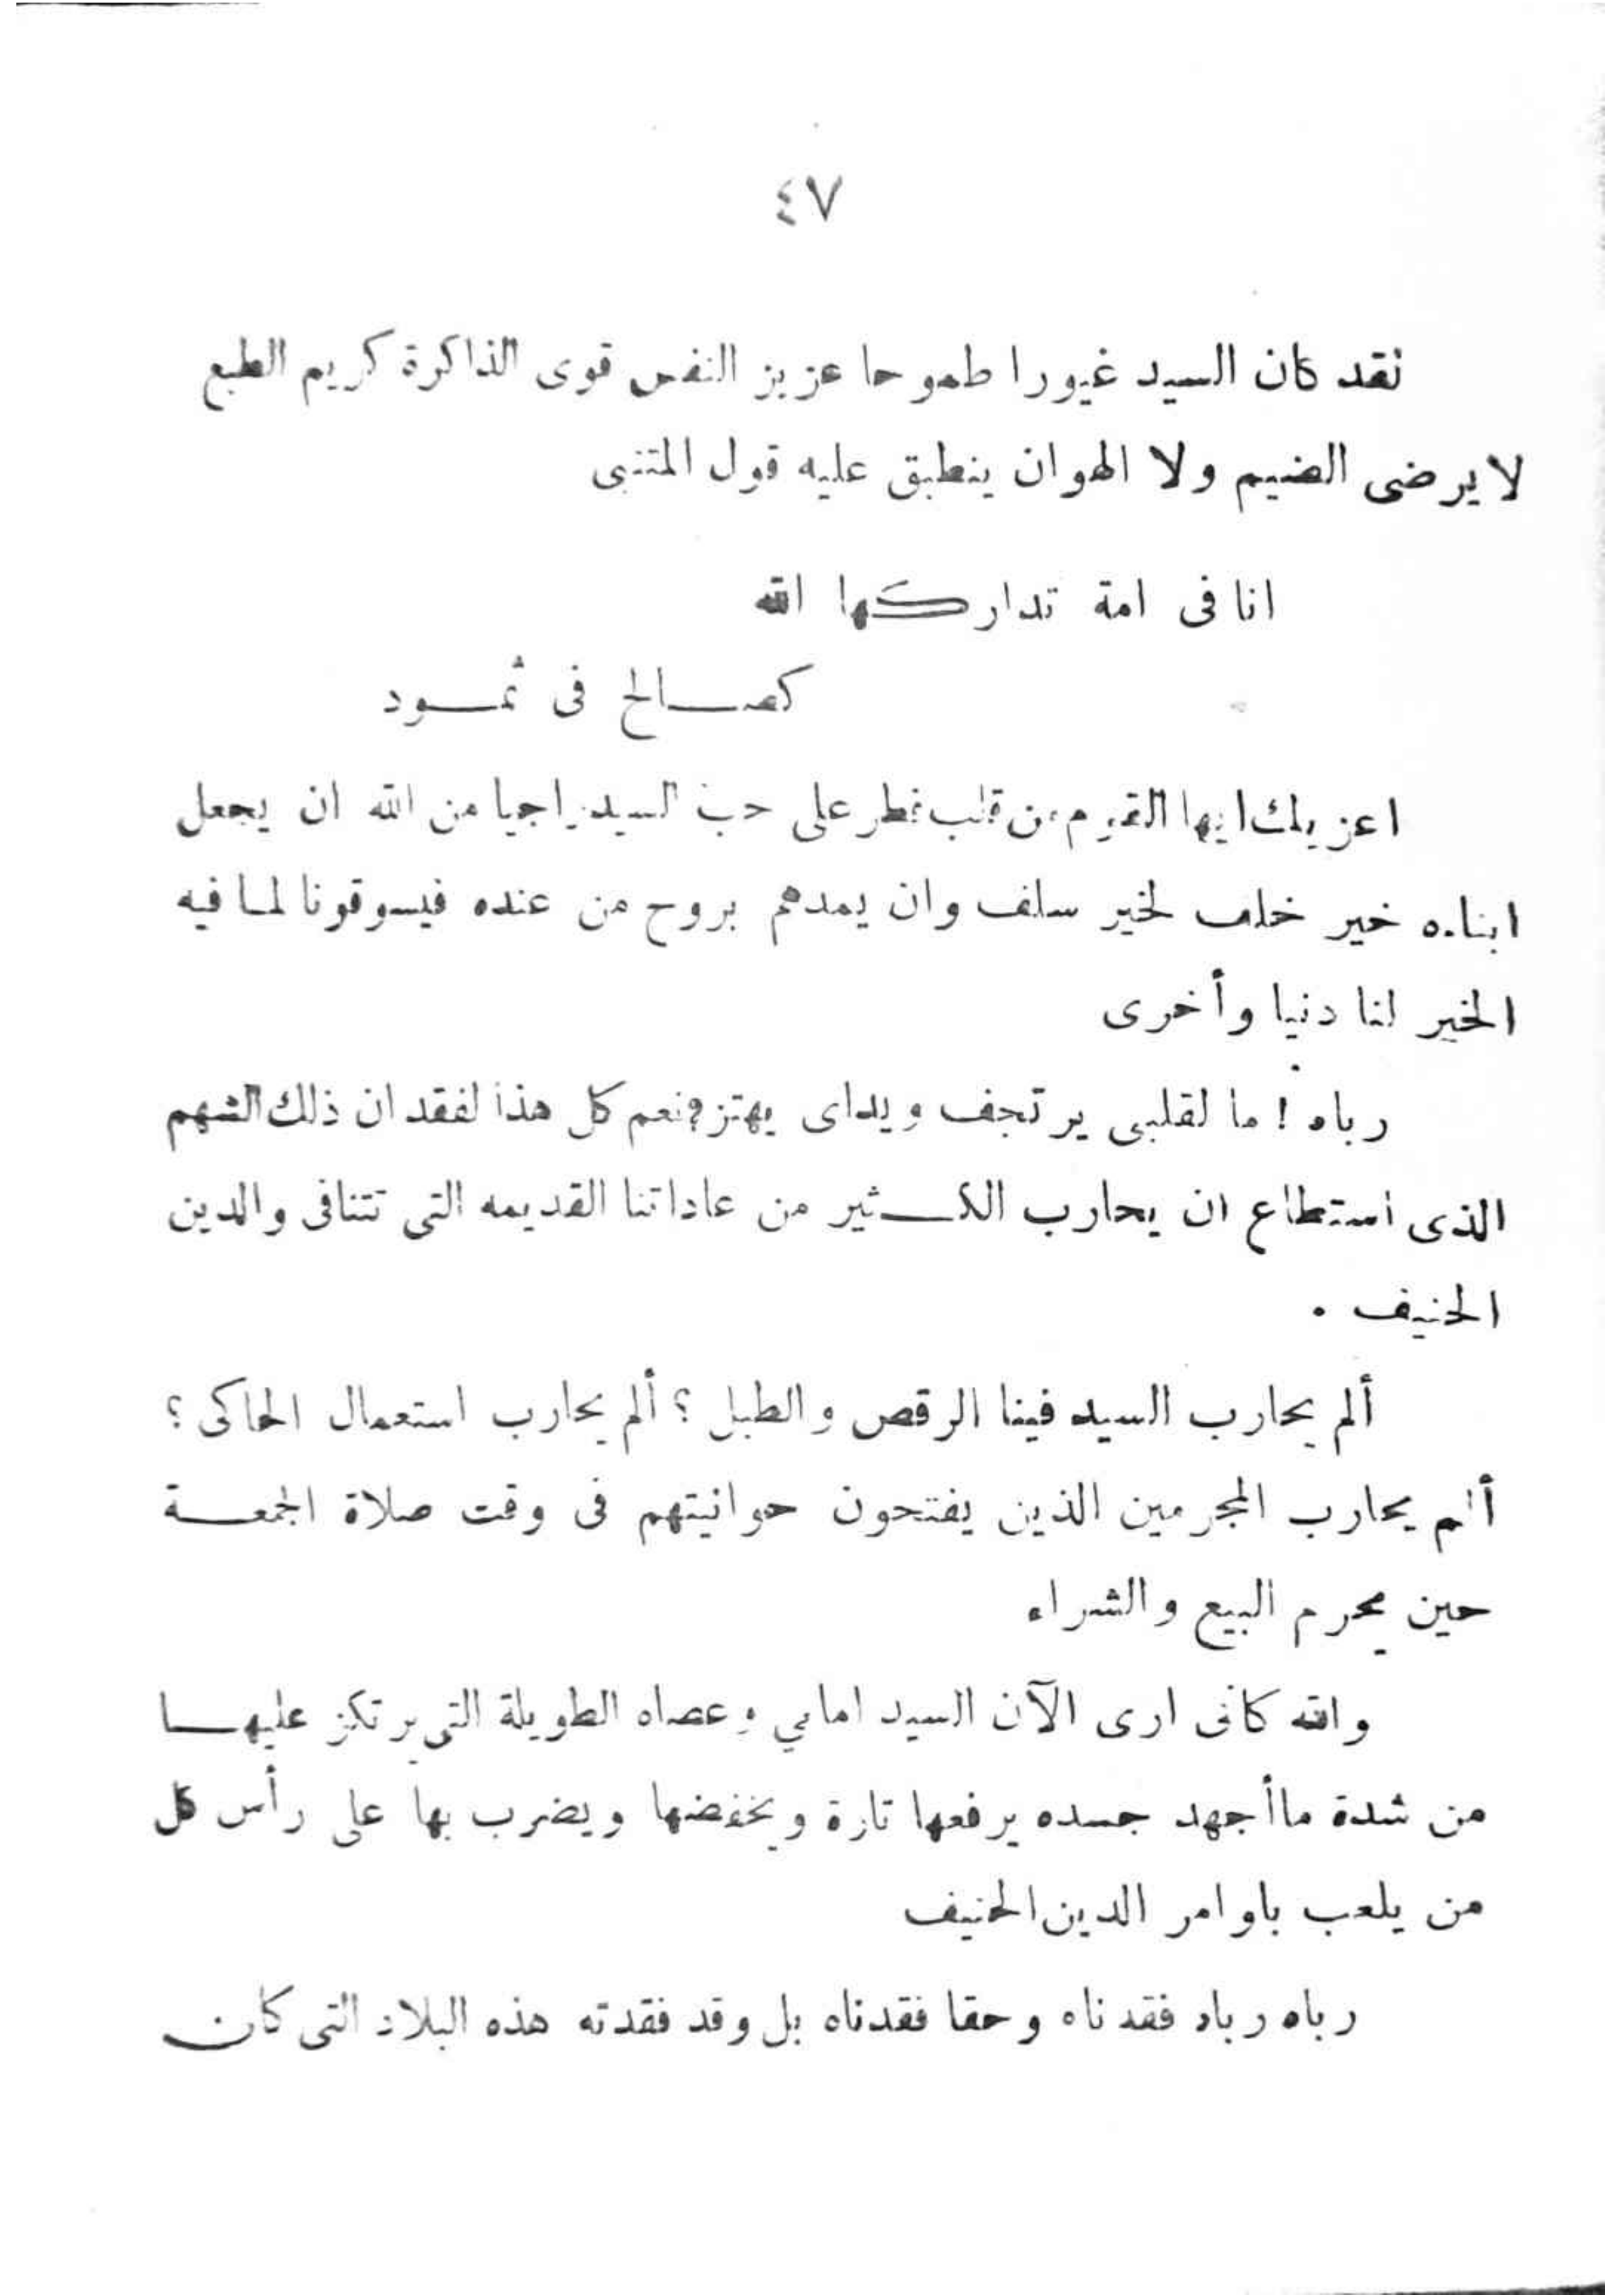 ٤٧
لقد كان السيد غيورا طموحا عزيز النفس قوى الذاكرة كريم الطبع
لا يرضى الضيم ولا الهوان ينطبق عليه قول المتنبى
انا فى امة تداركها الله
كصالح فى ثمود
اعزيك ايها القوم من قلب فطر على حب السيد راجيا من الله ان يجعل
ابناءه خير خلف لخير سلف وان يمدهم بروح من عنده فيسوقونا لما فيه
الخير لنا دنيا وأخرى
رباه ! ما لقلبى يرتجف ويداى يهتز ؟ نعم كل هذا لفقدان ذلك الشهم
الذى استطاع ان يحارب الكثير من عاداتنا القديمه التى تتنافى والدين
الحنيف .
ألم يحارب السيد فينا الرقص والطبل ؟ ألم يحارب استعمال الحاكى ؟
ألم يحارب المجرمين الذين يفتحون حوانيتهم فى وقت صلاة الجمعة
حين يحرم البيع والشراء
والله كانى ارى الآن السيد امامي وعصاه الطويلة التى يرتكز عليها
من شدة ما أجهد جسده يرفعها تارة ويخفضها ويضرب بها على رأس كل
من يلعب باوامر الدين الحنيف
رباه رباه فقدناه وحقا فقدناه بل وقد فقدته هذه البلاد التى كان